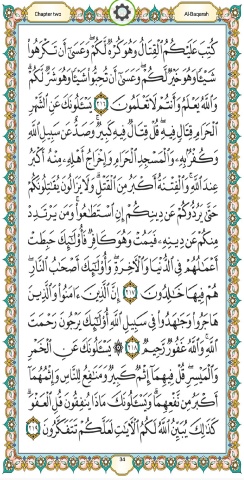 Chapter two Al-Baqarah
كُتِبَ عَلَيْكُمُ ٱلْقِتَالُ وَهُوَ كُرْهٌ لَّكُمْ ۖ وَعَسَىٰٓ أَن تَكْرَهُوا۟
شَيْـًٔا وَهُوَ خَيْرٌ لَّكُمْ ۖ وَعَسَىٰٓ أَن تُحِبُّوا۟ شَيْـًٔا وَهُوَ شَرٌّ لَّكُمْ ۗ
وَٱللَّهُ يَعْلَمُ وَأَنتُمْ لَا تَعْلَمُونَ ٢١٦ يَسْـَٔلُونَكَ عَنِ ٱلشَّهْرِ
ٱلْحَرَامِ قِتَالٍ فِيهِ ۖ قُلْ قِتَالٌ فِيهِ كَبِيرٌ ۖ وَصَدٌّ عَن سَبِيلِ ٱللَّهِ
وَكُفْرٌۢ بِهِۦ وَٱلْمَسْجِدِ ٱلْحَرَامِ وَإِخْرَاجُ أَهْلِهِۦ مِنْهُ أَكْبَرُ
عِندَ ٱللَّهِ ۚ وَٱلْفِتْنَةُ أَكْبَرُ مِنَ ٱلْقَتْلِ ۗ وَلَا يَزَالُونَ يُقَـٰتِلُونَكُمْ
حَتَّىٰ يَرُدُّوكُمْ عَن دِينِكُمْ إِنِ ٱسْتَطَـٰعُوا۟ ۚ وَمَن يَرْتَدِدْ
مِنكُمْ عَن دِينِهِۦ فَيَمُتْ وَهُوَ كَافِرٌ فَأُو۟لَـٰٓئِكَ حَبِطَتْ
أَعْمَـٰلُهُمْ فِى ٱلدُّنْيَا وَٱلْـَٔاخِرَةِ ۖ وَأُو۟لَـٰٓئِكَ أَصْحَـٰبُ ٱلنَّارِ ۖ
هُمْ فِيهَا خَـٰلِدُونَ ٢١٧ إِنَّ ٱلَّذِينَ ءَامَنُوا۟ وَٱلَّذِينَ
هَاجَرُوا۟ وَجَـٰهَدُوا۟ فِى سَبِيلِ ٱللَّهِ أُو۟لَـٰٓئِكَ يَرْجُونَ رَحْمَتَ
ٱللَّهِ ۚ وَٱللَّهُ غَفُورٌ رَّحِيمٌ ٢١٨ يَسْـَٔلُونَكَ عَنِ ٱلْخَمْرِ
وَٱلْمَيْسِرِ ۖ قُلْ فِيهِمَآ إِثْمٌ كَبِيرٌ وَمَنَـٰفِعُ لِلنَّاسِ وَإِثْمُهُمَآ
أَكْبَرُ مِن نَّفْعِهِمَا ۗ وَيَسْـَٔلُونَكَ مَاذَا يُنفِقُونَ قُلِ ٱلْعَفْوَ ۗ
كَذَٰلِكَ يُبَيِّنُ ٱللَّهُ لَكُمُ ٱلْـَٔايَـٰتِ لَعَلَّكُمْ تَتَفَكَّرُونَ ٢١٩
34